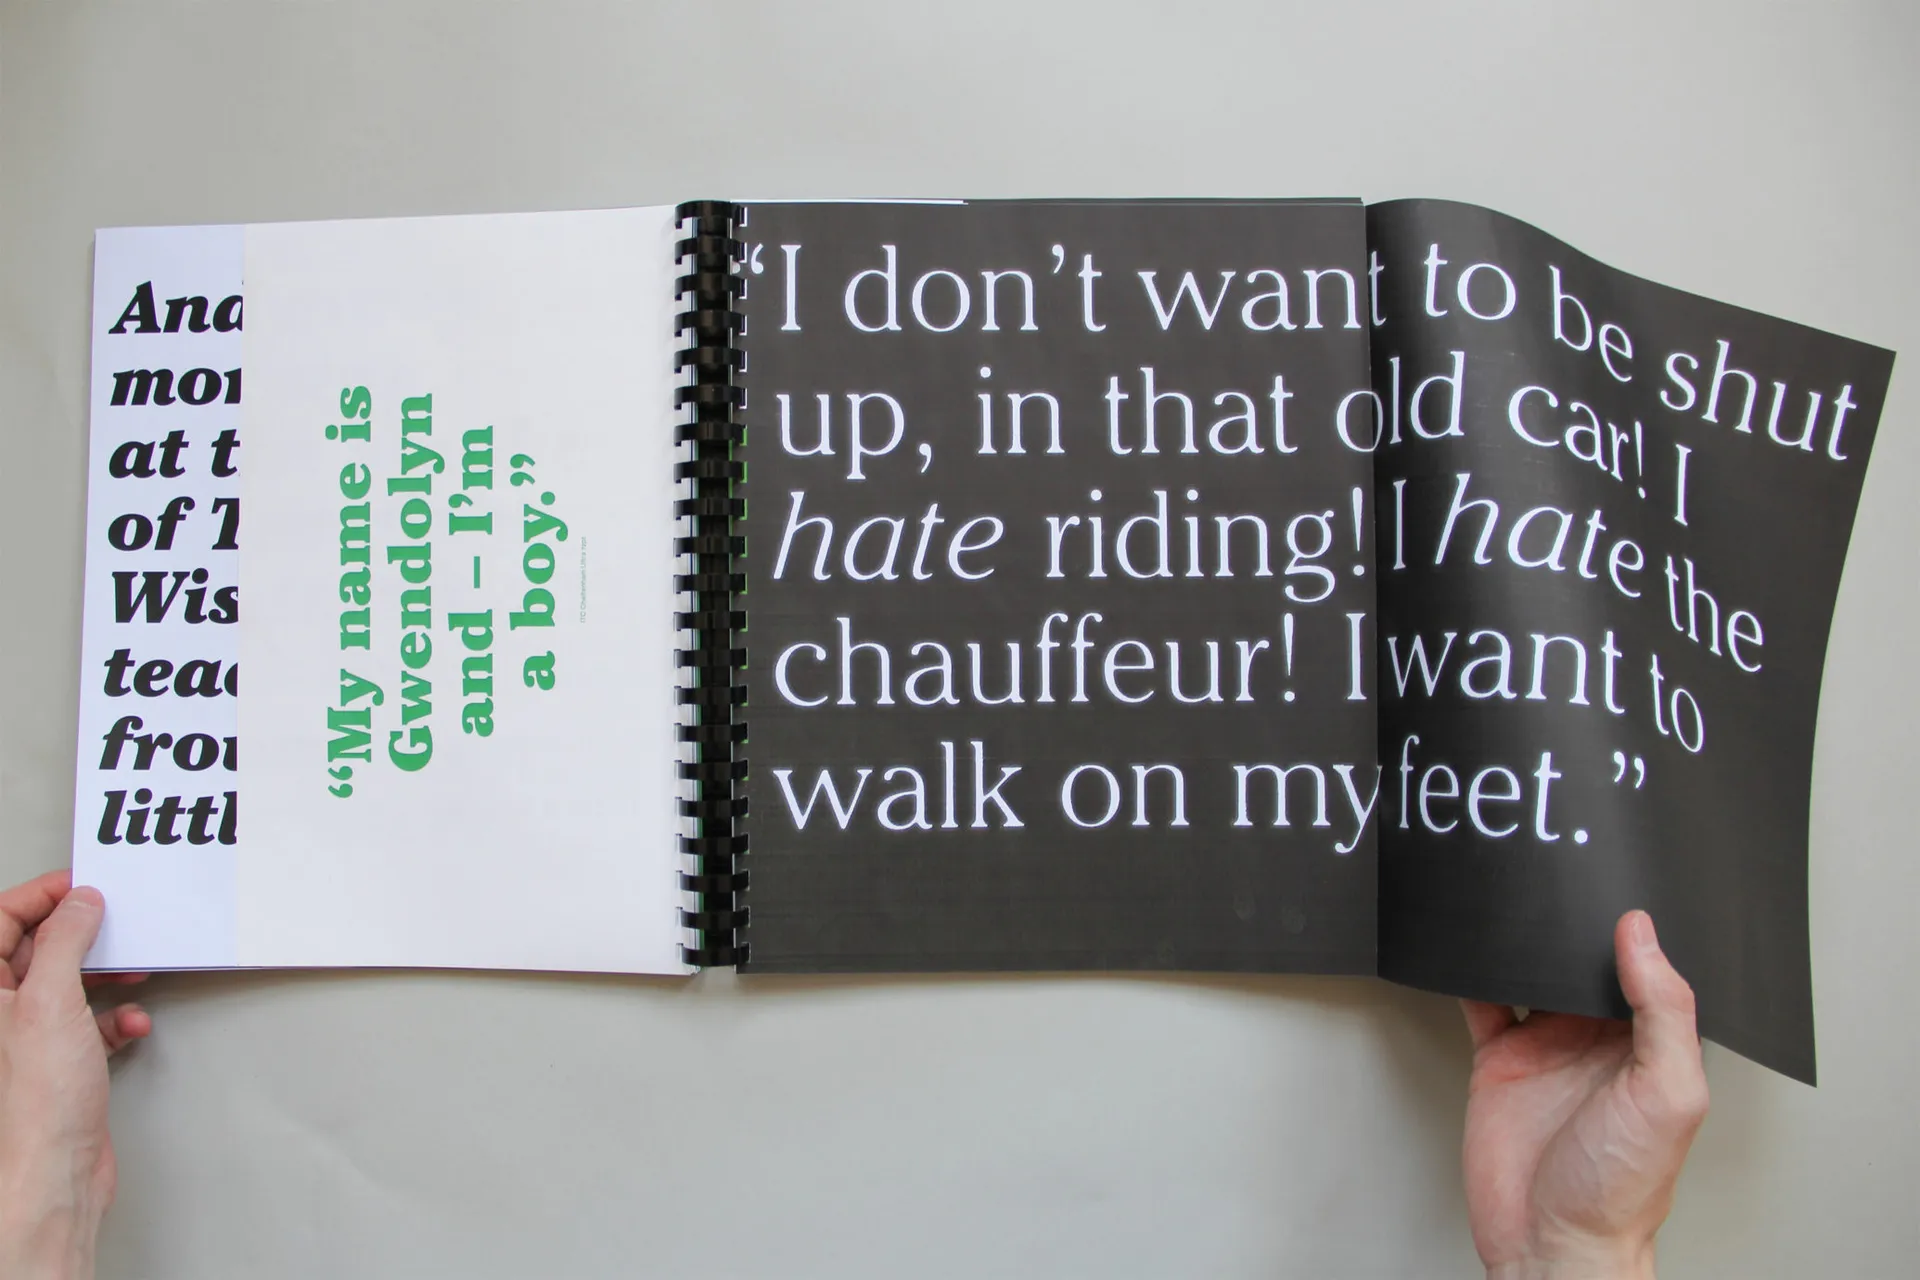 And
mor
at t
of T
Wis
teac
fro
littl
“My name is
Gwendolyn
and – I’m
a boy.”
ITC Cheltenham Ultra
“I don’t want to be shut
up, in that old car! I
hate riding! I hate the
chauffeur! I want to
walk on my feet.”